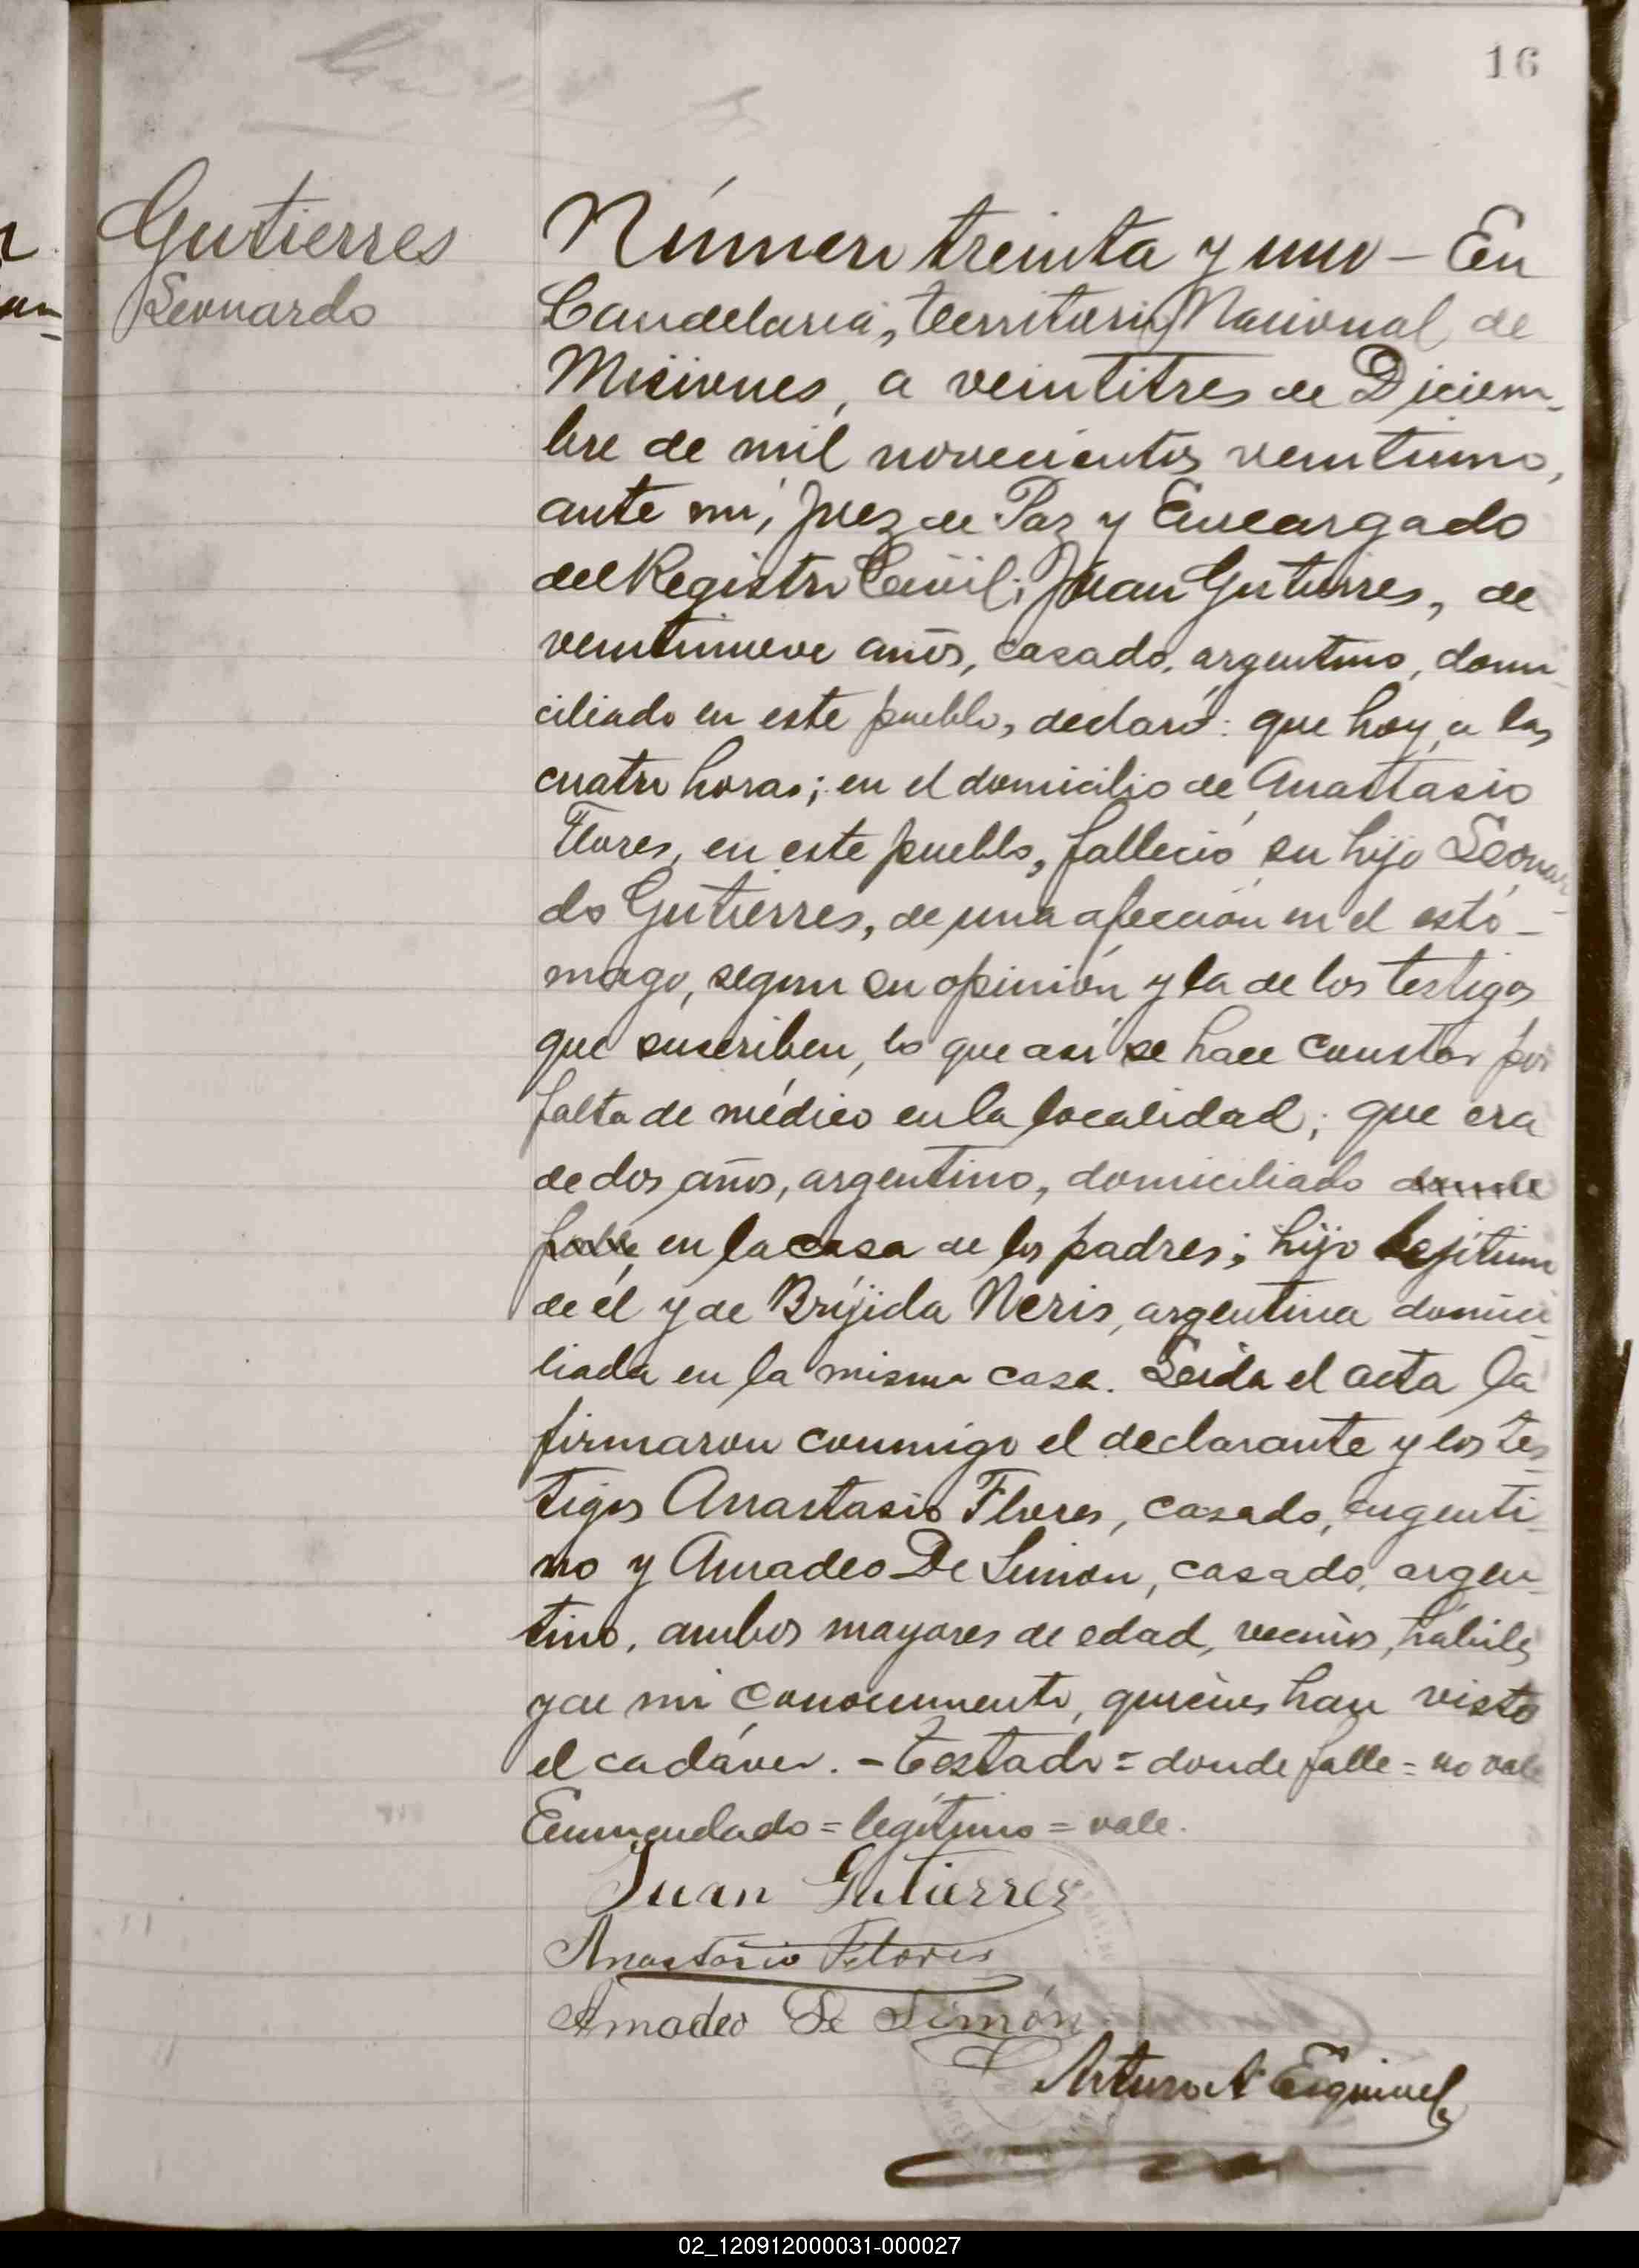 16
Gutierres
Leonardo
Número treinta y uno — En
Candelaria, territorio Nacional de
Misiones, a veintitres de Diciem-
bre de mil novecientos veintiuno,
ante mí, Juez de Paz y Encargado
del Registro Civil; Juan Gutierres, de
veintinueve años, casado, argentino, domi-
ciliado en este pueblo, declaró: que hoy, a las
cuatro horas; en el domicilio de Anastasio
Flores, en este pueblo, falleció su hijo Leonar-
do Gutierres, de una afección en el estó-
mago, segun su opinión y la de los testigos
que suscriben, lo que así se hace constar por
falta de médico en la localidad; que era
de dos años, argentino, domiciliado donde
falle en la casa de los padres; hijo legítimo
de él y de Bríjida Neris, argentina domici-
liada en la misma casa. Leída el acta la
firmaron conmigo el declarante y los tes-
tigos Anastasio Flores, casado, argenti-
no y Amadeo De Simon, casado, argen-
tino, ambos mayores de edad, vecinos, hábiles
y de mi conocimiento, quiénes han visto
el cadáver. — Testado = donde falle = no vale
Enmendado = legítimo = vale.
Juan Gutierrez
Anastasio Flores
Amadeo De Simón
Arturo A Esquivel
02_120912000031-000027